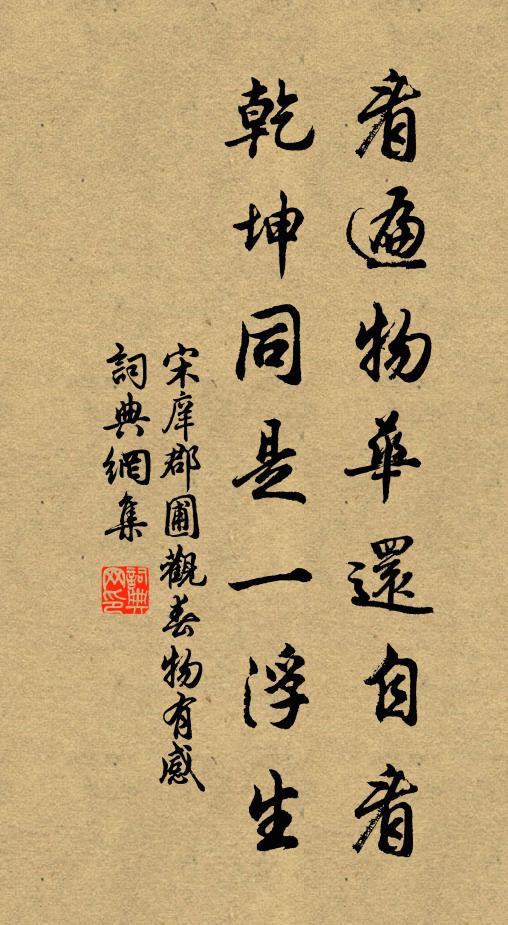 看遍物華還自看
乾坤同是一浮生
宋庠郡圃觀春物有感
詞典網集
詞典網印